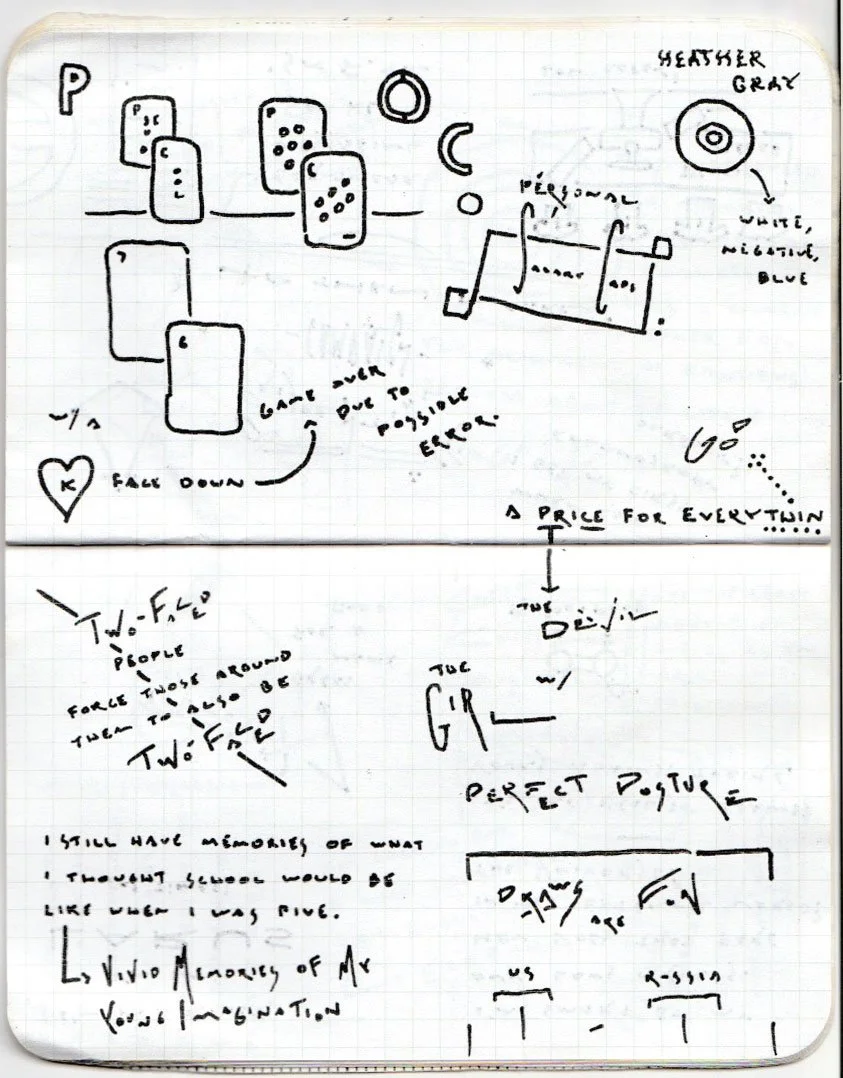 P
HEATHER
GRAY
P
C
P
C
PERSONAL
WHITE,
NEGATIVE,
BLUE
7
6
GAME OVER
DUE TO
POSSIBLE
ERROR.
W/A
K FACE DOWN
GO
A PRICE FOR EVERYTHIN
TWO-FACED
PEOPLE
FORCE THOSE AROUND
THEM TO ALSO BE
TWO-FACED
THE
DEVIL
W/
THE
GIRL
PERFECT POSTURE
I STILL HAVE MEMORIES OF WHAT
I THOUGHT SCHOOL WOULD BE
LIKE WHEN I WAS FIVE.
VIVID MEMORIES OF MY
YOUNG IMAGINATION
DRAWS ARE FUN
US - RUSSIA